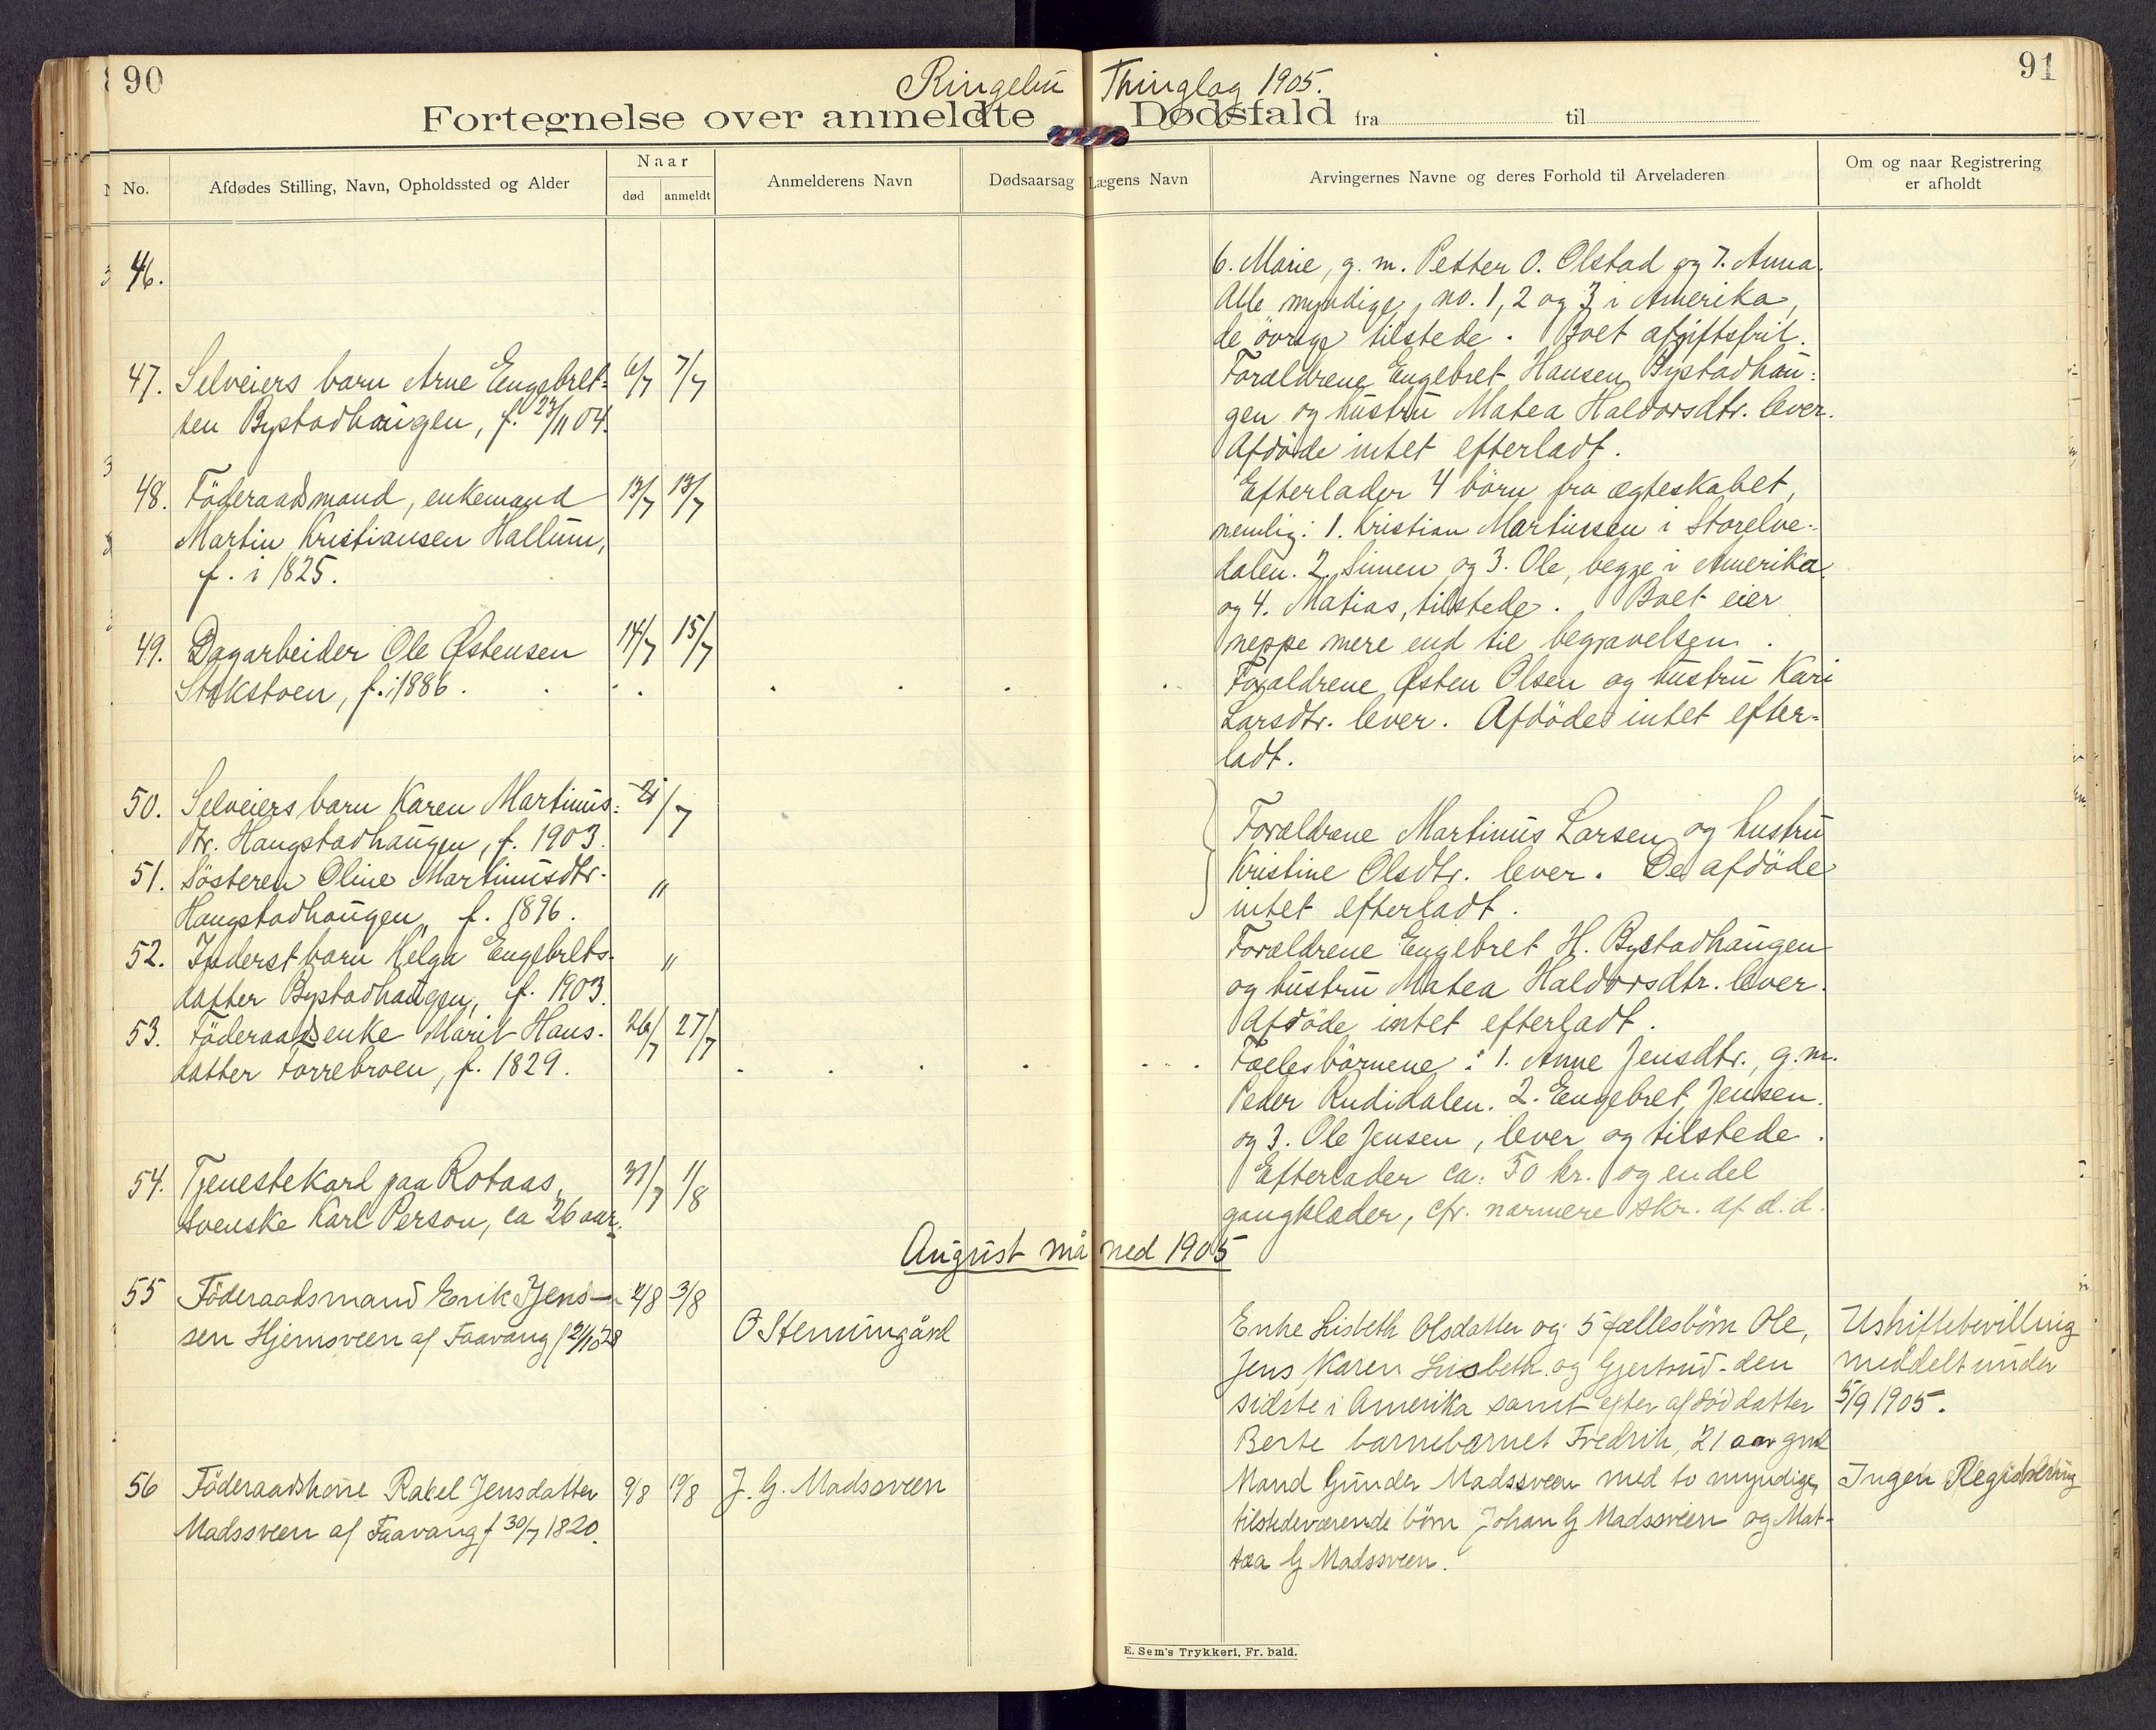 90
Ringebu Thinglag 1905.
91
Fortegnelse over anmeldte Dødsfald fra til
No.
Afdødes Stilling, Navn, Opholdssted og Alder
Naar
død anmeldt
Anmelderens Navn
Dødsaarsag Lægens Navn
Arvingernes Navne og deres Forhold til Arveladeren
Om og naar Registrering
er afholdt
46.
6. Marie, g. m. Petter O. Olstad og 7. Anna.
Alle myndige, no. 1, 2 og 3 i Amerika,
de øvrige tilstede. Boet afgiftsfrit.
47. Selveiers barn Arne Engebret-
sen Bystadhaugen, f. 23/11 04.
6/7 7/7
Forældrene Engebret Hansen Bystadhau-
gen og hustru Matea Haldorsdtr. lever.
Afdöde intet efterladt.
48. Föderaadsmand, enkemand
Martin Kristiansen Hallum,
f. i 1825.
13/7 13/7
Efterlader 4 börn fra ægteskabet,
nemlig: 1. Kristian Martinsen i Storelve-
dalen. 2. Simen og 3. Ole, begge i Amerika
og 4. Matias, tilstede. Boet eier
neppe mere end til begravelsen.
49. Dagarbeider Ole Østensen
Stokstoen, f. i 1886.
14/7 15/7
Forældrene Østen Olsen og hustru Kari
Larsdtr. lever. Afdöde intet efter-
ladt.
50. Selveiers barn Karen Martinus-
dtr. Haugstadhaugen, f. 1903.
21/7
51. Søsteren Oline Martinusdtr.
Haugstadhaugen, f. 1896.
"
Forældrene Martinus Larsen og hustru
Kristine Olsdtr. lever. De afdöde
intet efterladt.
52. Inderst barn Helga Engebrets-
datter Bystadhaugen, f. 1903.
"
Forældrene Engebret H. Bystadhaugen
og hustru Matea Haldorsdtr. lever.
Afdöde intet efterladt.
53. Föderaadsenke Marit Hans-
datter Torrebroen, f. 1829.
26/7 27/7
Fælesbörnene: 1. Anne Jensdtr., g. m.
Peder Rudidalen. 2. Engebret Jensen.
og 3. Ole Jensen, lever og tilstede.
54. Tjenestekarl paa Rotaas,
svenske Karl Person, ca 26 aar.
31/7 1/8
Efterlader ca. 50 kr. og endel
gangklæder, cfr. nærmere skr. af d.d.
August måned 1905
55 Föderaadsmand Erik Jens-
sen Hjemsveen af Faavang
2/8 3/8
O Stenumgård
Enke Lisbeth Olsdatter og 5 fællesbörn Ole,
Jens, Karen Lisbeth og Gjertrud - den
sidste i Amerika samt efter afdöd datter
Berte barnebarnet Fredrik, 21 aar gml
Uskiftebevilling
meddelt under
5/9 1905.
56 Föderaadskone Rakel Jensdatter
Madssveen af Faavang f 30/7 1820.
9/8 10/8
J. G. Madssveen
Mand Gunder Madssveen med to myndige,
tilstedeværende börn Johan G Madssveen og Mat-
hea G Madssveen.
Ingen Registrering
E. Sem's Trykkeri, Fr. hald.